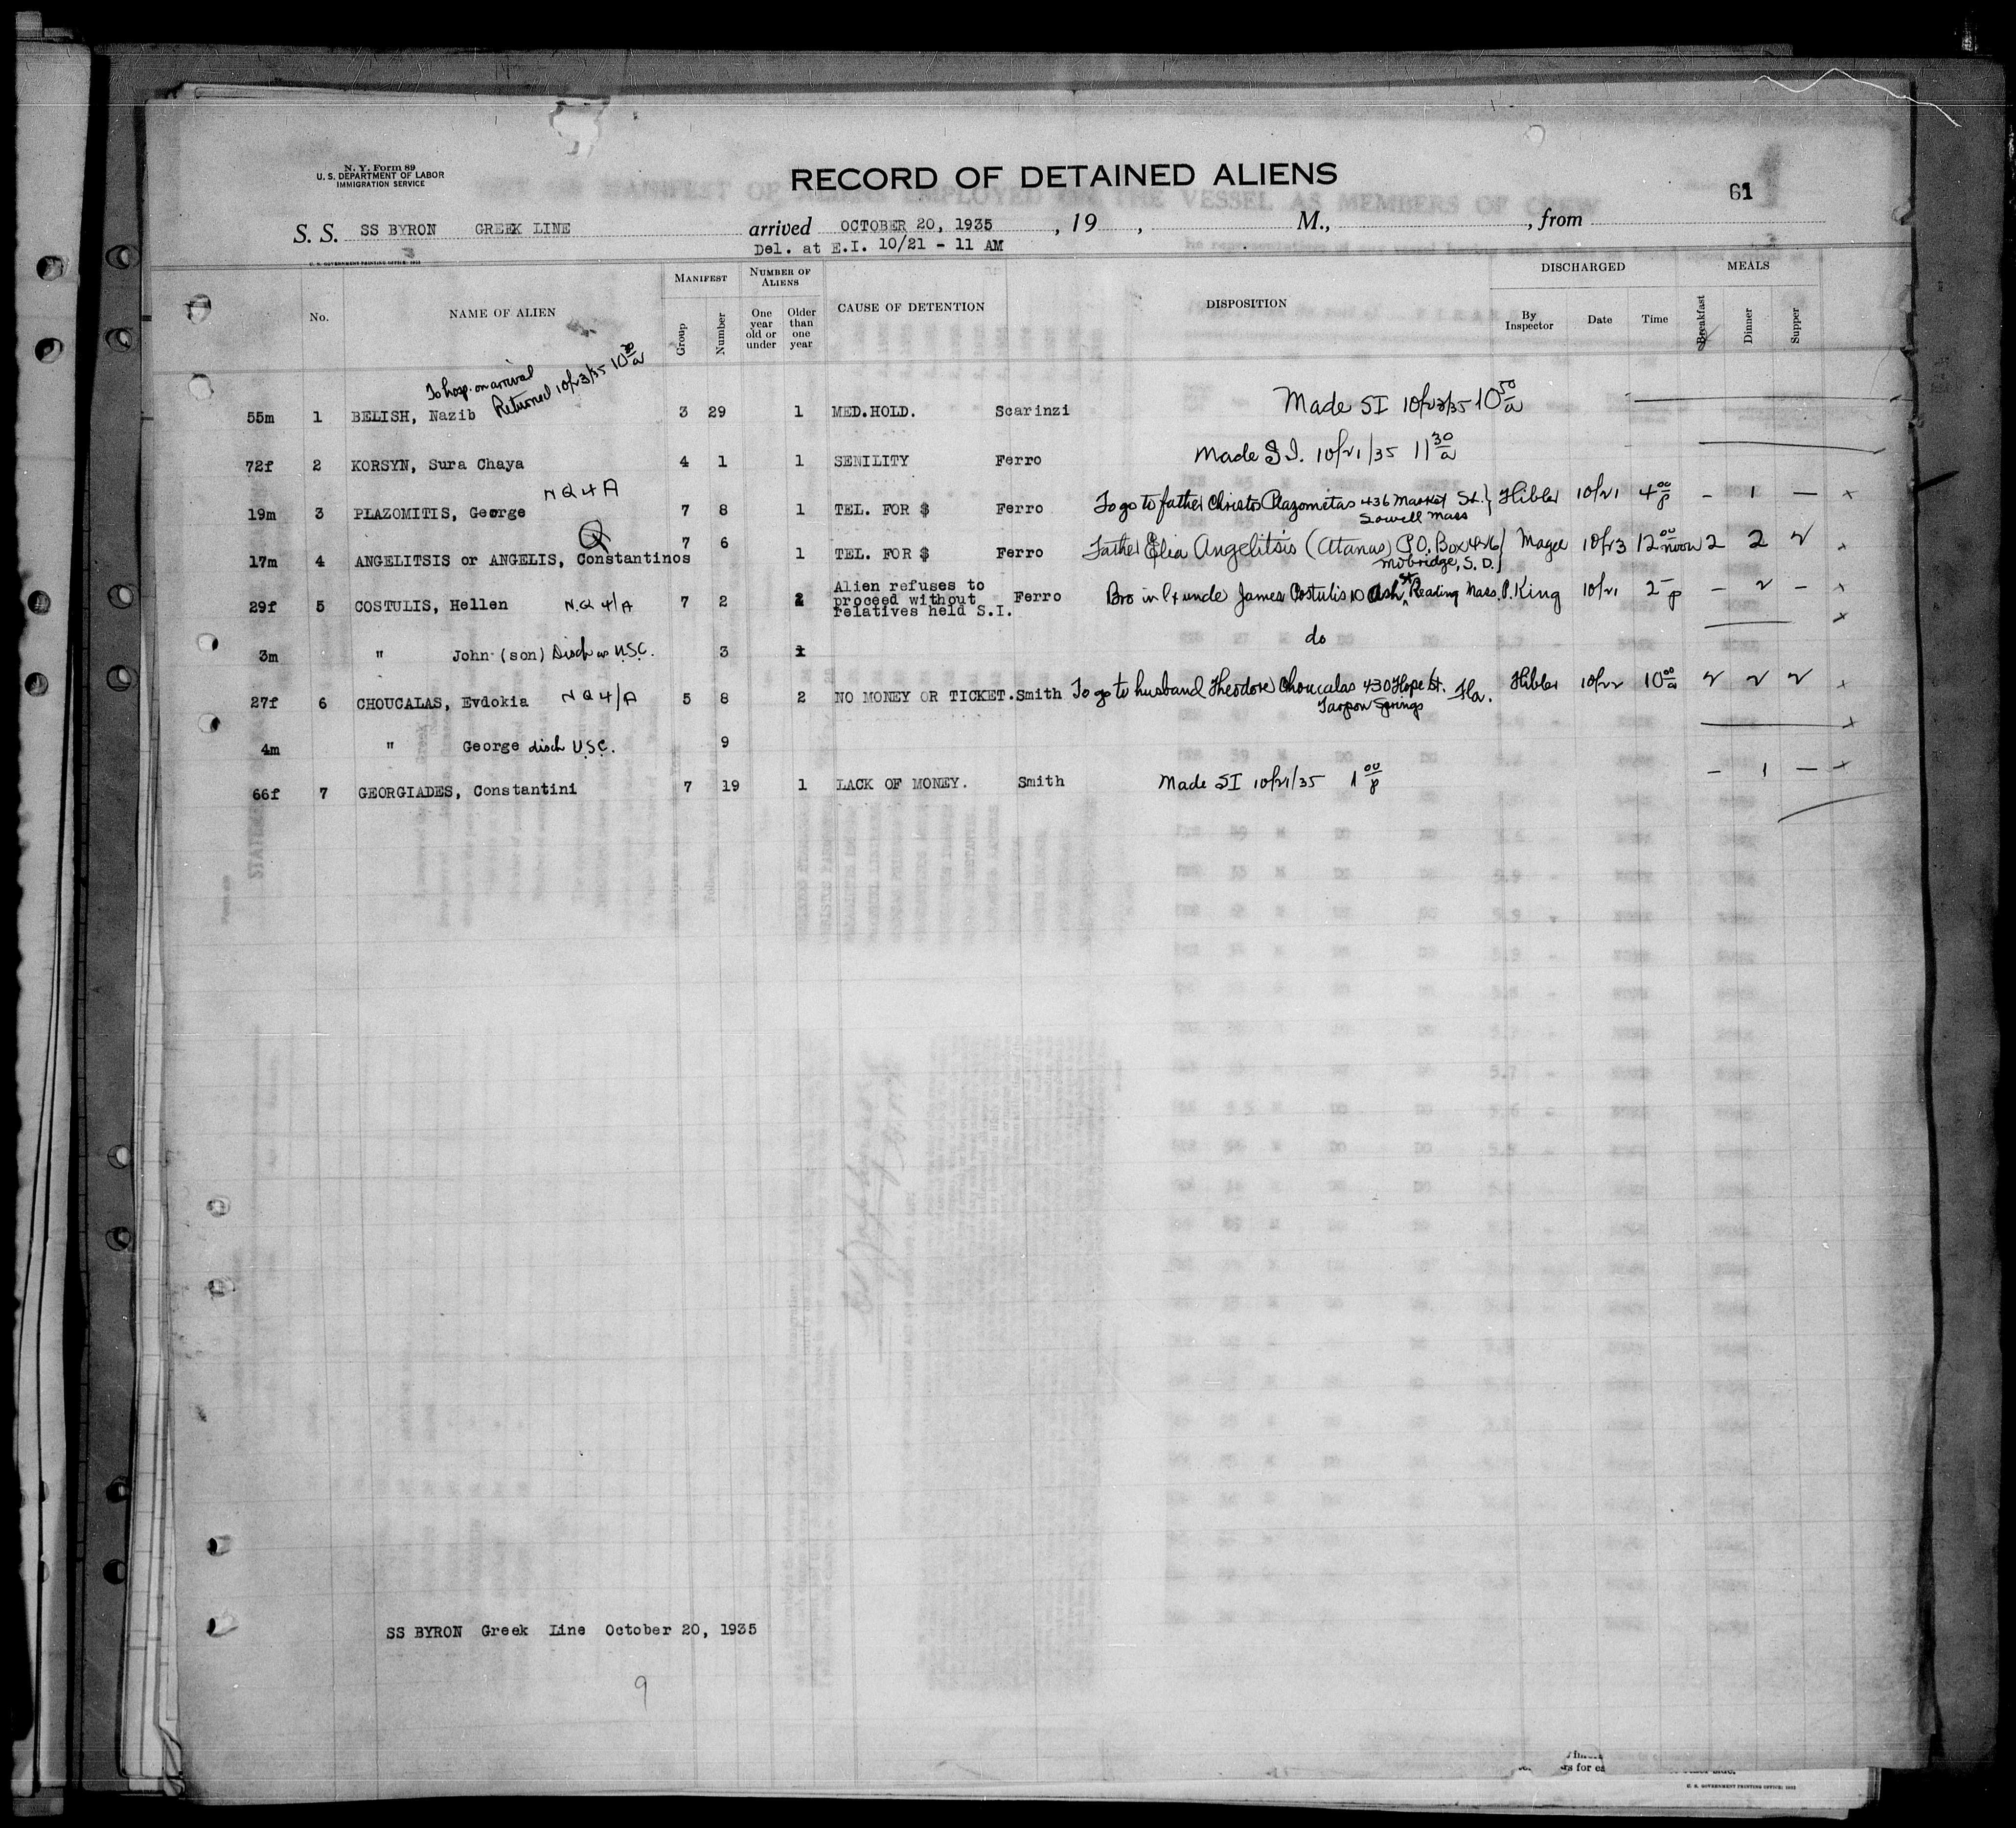 N. Y. Form 89
U. S. DEPARTMENT OF LABOR
IMMIGRATION SERVICE
RECORD OF DETAINED ALIENS
61
S. S. SS BYRON GREEK LINE arrived OCTOBER 20, 1935 , 19 , M., , from
Del. at E.I. 10/21 - 11 AM
U. S. GOVERNMENT PRINTING OFFICE:
No. NAME OF ALIEN MANIFEST Group Number NUMBER OF ALIENS One year old or under Older than one year CAUSE OF DETENTION DISPOSITION DISCHARGED By Inspector Date Time MEALS Breakfast Dinner Supper
To hosp. on arrival
Returned 10/23/35 10 30/a
55m 1 BELISH, Nazib 3 29 1 MED.HOLD. Scarinzi Made SI 10/23/35 10 50/a
72f 2 KORSYN, Sura Chaya 4 1 1 SENILITY Ferro Made S.I. 10/21/35 11 30/a
NQ4A
19m 3 PLAZOMITIS, George 7 8 1 TEL. FOR $ Ferro To go to father Christos Plazometas 436 Market St. Lowell Mass Hibler 10/21 4 00/p – 1 – x
Q
17m 4 ANGELITSIS or ANGELIS, Constantinos 7 6 1 TEL. FOR $ Ferro Father Elia Angelitsis (Atanas) P.O. Box 426 Mobridge, S.D. Magee 10/23 12 00/noon 2 2 2 x
29f 5 COSTULIS, Hellen N.Q 4/A 7 2 Alien refuses to proceed without relatives held S.I. Ferro Bro in l & uncle James Costulis 10 Ash St. Reading Mass. P. King 10/21 2 –/p – 2 – x
3m " John (son) Disch as U.S.C. 3 1 do x
27f 6 CHOUCALAS, Evdokia NQ4/A 5 8 2 NO MONEY OR TICKET. Smith To go to husband Theodore Choucalas 430 Hope St. Tarpon Springs Fla. Hibler 10/22 10 00/a 2 2 2 x
4m " George disch U.S.C. 9 x
66f 7 GEORGIADES, Constantini 7 19 1 LACK OF MONEY. Smith Made SI 10/21/35 1 00/p – 1 – x
SS BYRON Greek Line October 20, 1935
9
U. S. GOVERNMENT PRINTING OFFICE: